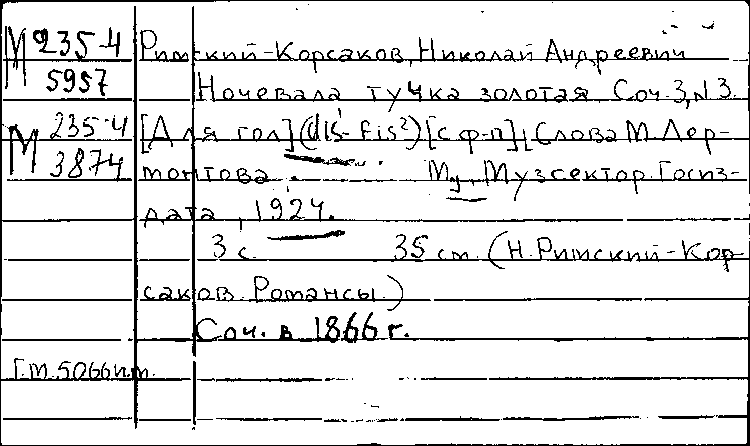 М 235-4 Римский-Корсаков, Николай Андреевич
5957 Ночевала тучка золотая. Соч. 3, N 3.
М 235-4 [Для гол] (dis¹-fis²) [с ф-п] Слова М. Лер-
3874 монтова. М., Музсектор Госиз-
дата, 1924.
3 с. 35 см. (Н. Римский-Кор-
саков. Романсы.)
Соч. в 1866 г.
Г.М.5066